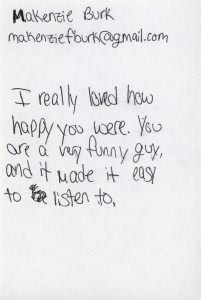 Makenzie Burk
makenziefburk@gmail.com
I really loved how
happy you were. You
are a very funny guy,
and it made it easy
to listen to.